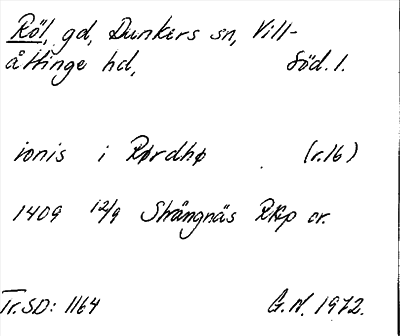 Röl, gd, Dunkers sn, Vill-
åttinge hd, Söd. l.
ionis i Rørdhø (r. 16)
1409 12/9 Strängnäs RKp or.
Tr. SD: 1164 G.N. 1972.